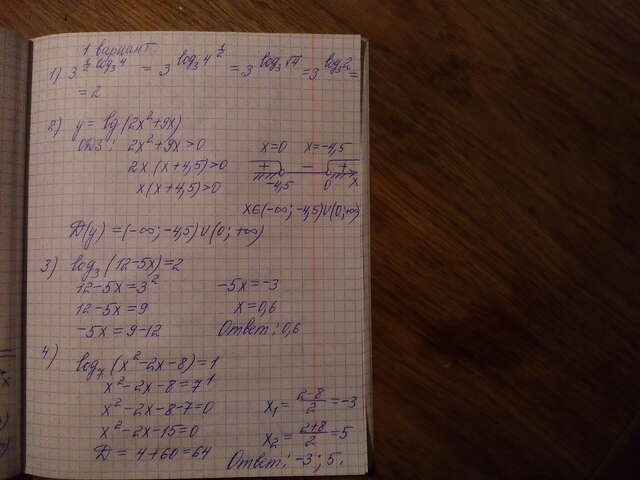 1 вариант.
1) 3^{½ log₃4} = 3^{log₃4^{½}} = 3^{log₃√4} = 3^{log₃2} =
= 2
2) y = lg(2x²+9x)
ОДЗ: 2x²+9x>0
2x(x+4,5)>0
x(x+4,5)>0
x=0 x=-4,5
+ − +
-4,5 0 x
x∈(-∞; -4,5)∪(0; +∞)
D(y) = (-∞; -4,5)∪(0; +∞)
3) log₃(12-5x)=2
12-5x=3²
12-5x=9
-5x=9-12
-5x=-3
x=0,6
Ответ: 0,6
4) log₇(x²-2x-8)=1
x²-2x-8=7¹
x²-2x-8-7=0
x²-2x-15=0
D = 4+60=64
x₁ = (2-8)/2 = -3
x₂ = (2+8)/2 = 5
Ответ: -3; 5.